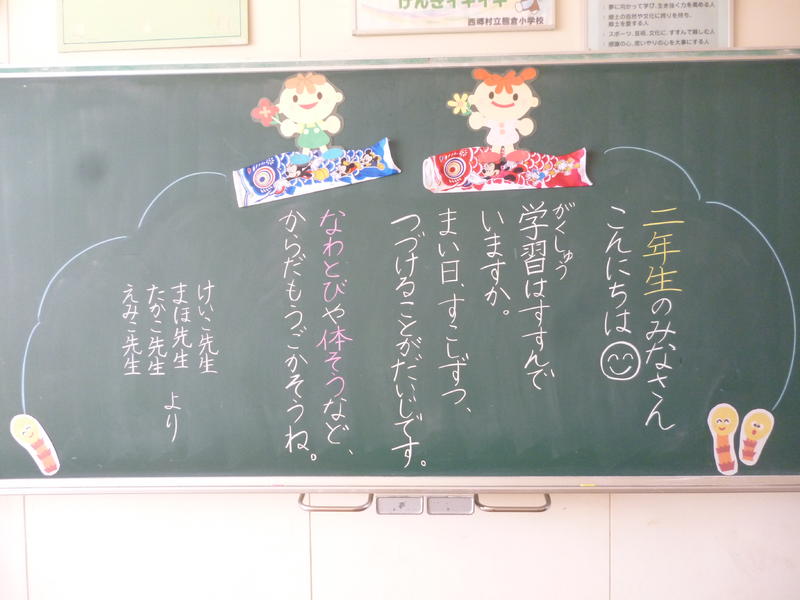 げんきイキイキ
西郷村立熊倉小学校
夢に向かって学び、生き抜く力を高める人
郷土の自然や文化に誇りを持ち、
郷土を愛する人
スポーツ、芸術、文化に、すすんで親しむ人
感謝の心、思いやりの心を大事にする人
二年生のみなさん
こんにちは
がくしゅう
学習はすすんで
いますか。
まい日、すこしずつ、
つづけることがだいじです。
なわとびや体そうなど、
からだもうごかそうね。
けいこ先生
まほ先生
たかこ先生
えみこ先生
より